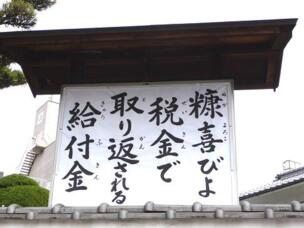 糠喜びよ
税金で
取り返される
給付金